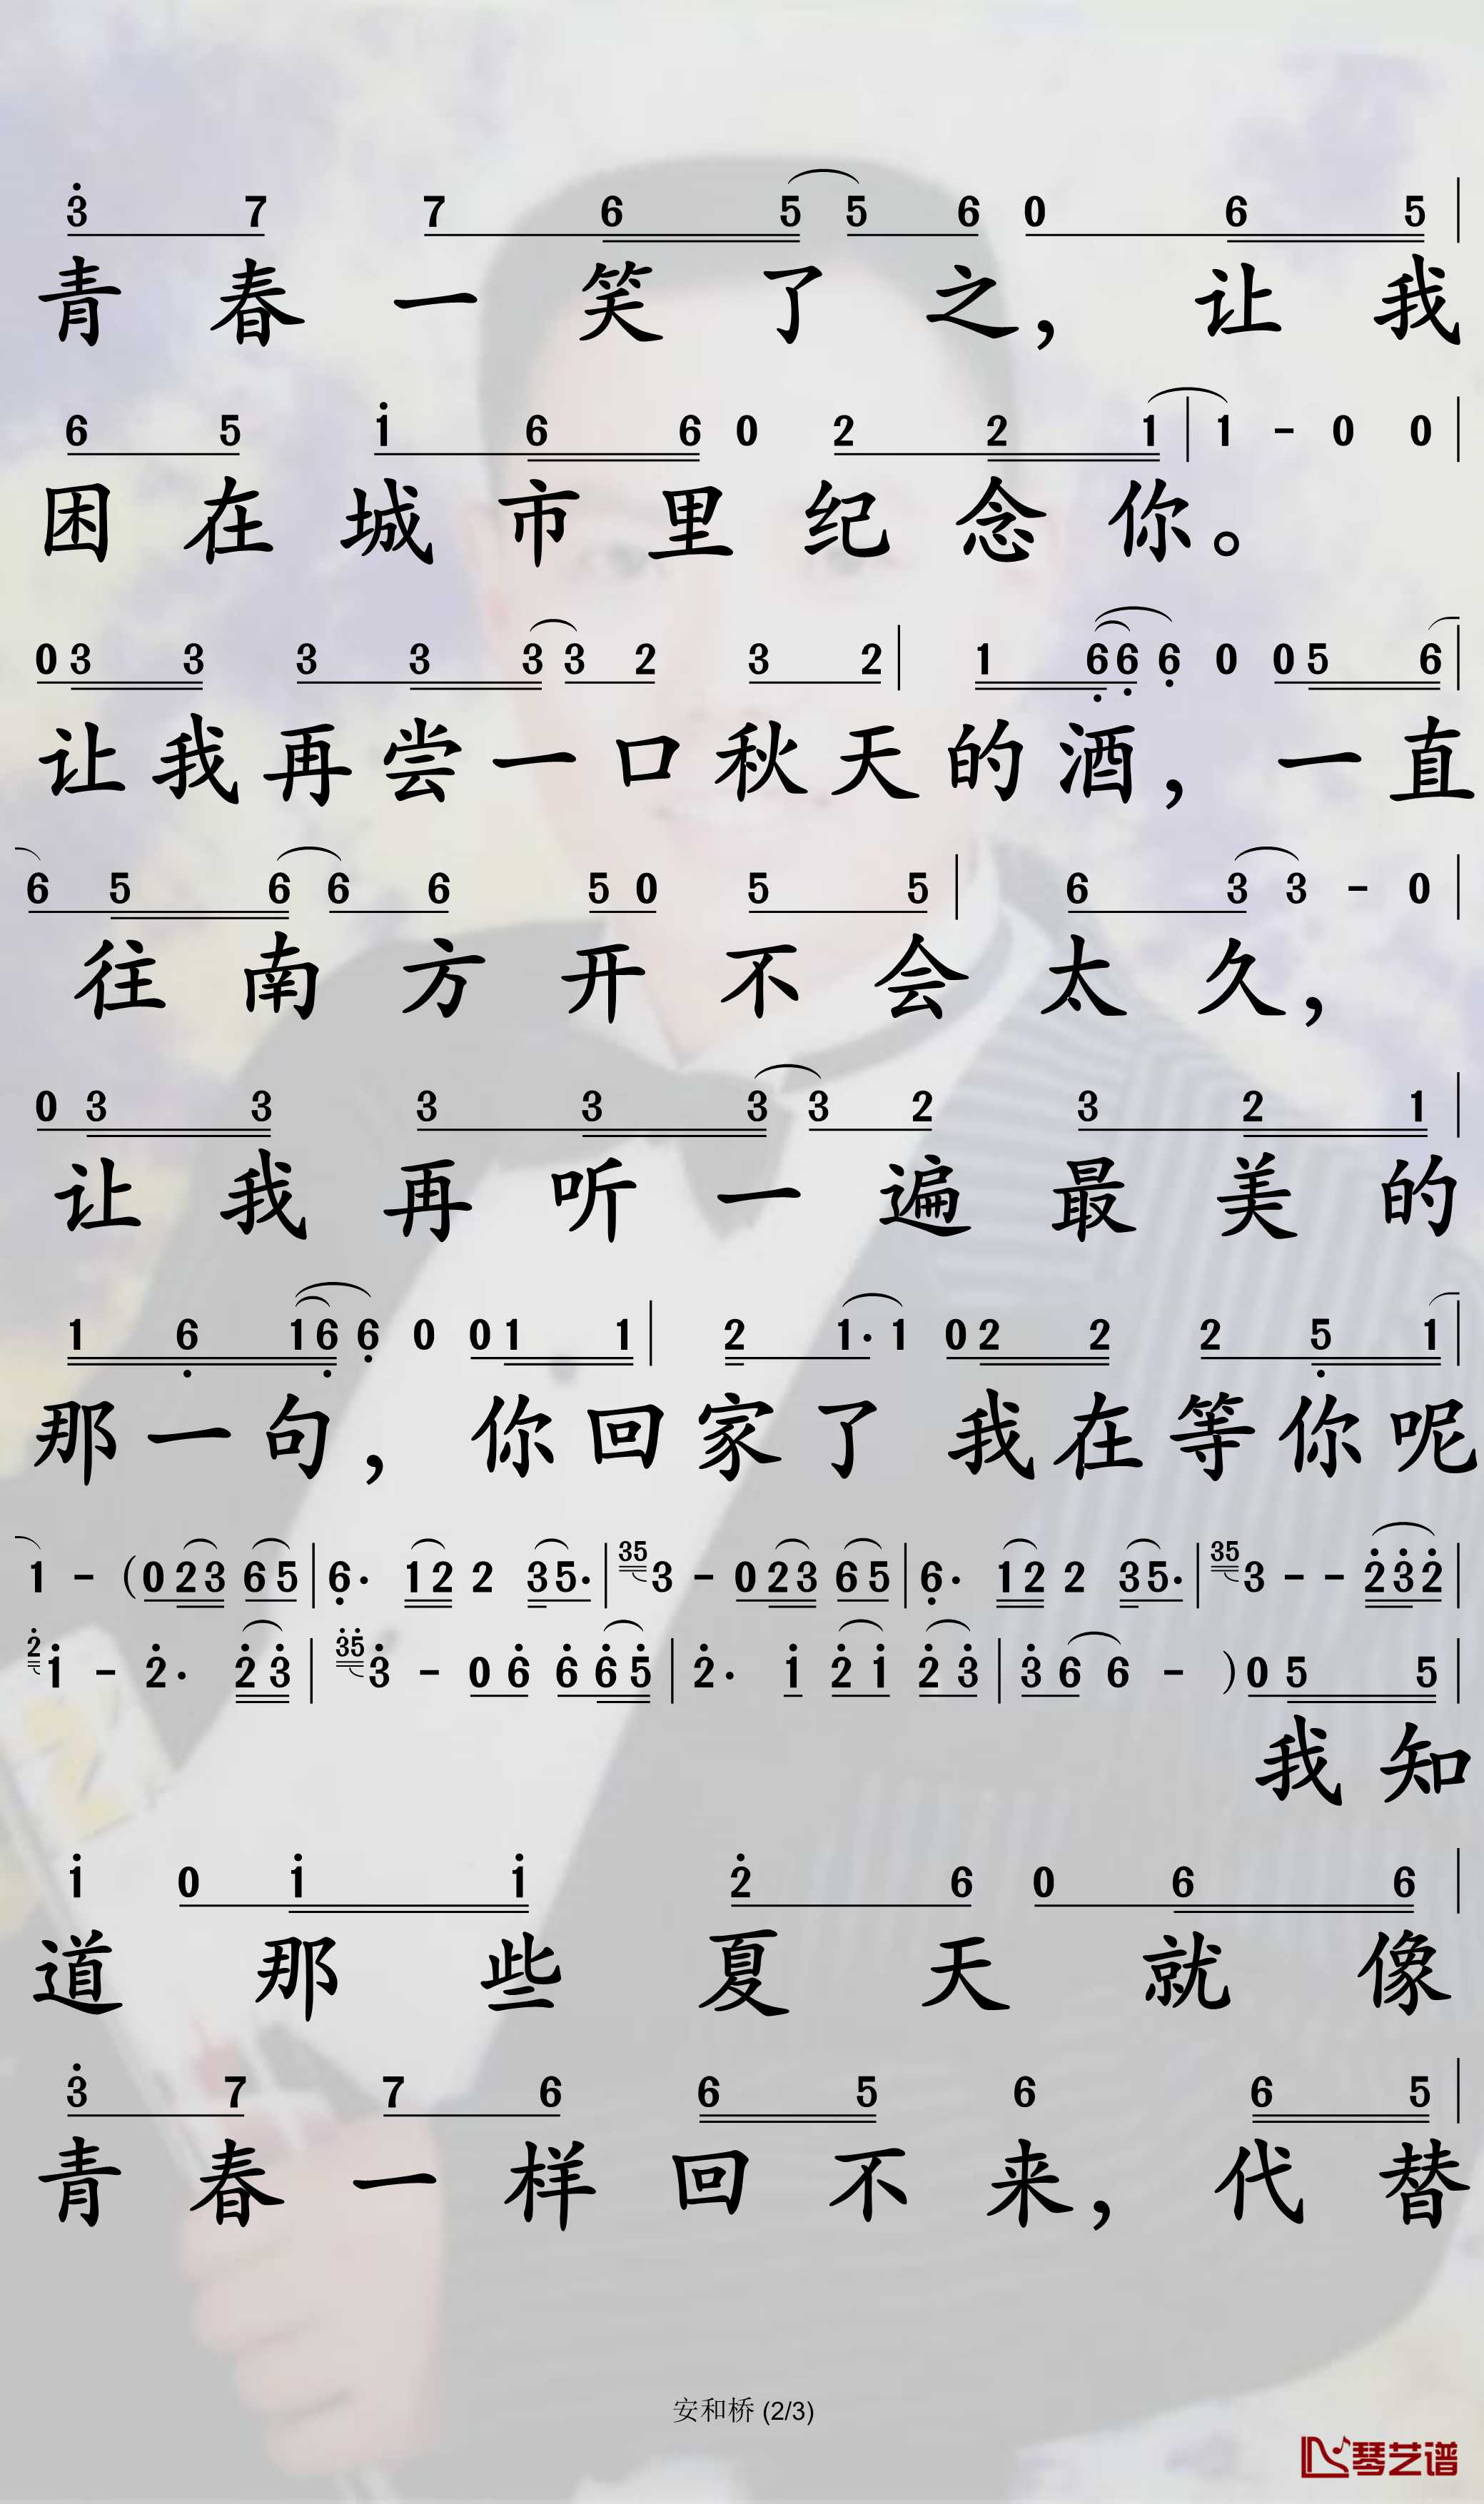 3̇ 7 7 6 5 5 6 0 6 5 |
青春一笑了之，让我
6 5 1̇ 6 6 0 2 2 1 | 1 - 0 0 |
困在城市里纪念你。
0 3 3 3 3 3 3 2 3 2 | 1 6̣ 6̣ 6̣ 0 0 5 6 |
让我再尝一口秋天的酒，一直
6 5 6 6 6 5 0 5 5 | 6 3 3 - 0 |
往南方开不会太久，
0 3 3 3 3 3 3 2 3 2 1 |
让我再听一遍最美的
1 6̣ 1 6̣ 6̣ 0 0 1 1 | 2 1· 1 0 2 2 2 5̣ 1 |
那一句，你回家了 我在等你呢
1 - (0 2 3 6 5 | 6̣· 1 2 2 3 5· | 35 3 - 0 2 3 6 5 | 6̣· 1 2 2 3 5· | 35 3 - - 2̇ 3̇ 2̇ |
2̇ 1̇ - 2̇· 2̇ 3̇ | 3̇5̇ 3̇ - 0 6̇ 6̇ 6̇ 5̇ | 2̇· 1̇ 2̇ 1̇ 2̇ 3̇ | 3̇ 6 6 - ) 0 5 5 |
我知
1̇ 0 1̇ 1̇ 2̇ 6 0 6 6 |
道那些夏天就像
3̇ 7 7 6 6 5 6 6 5 |
青春一样回不来，代替
安和桥 (2/3)
琴艺谱